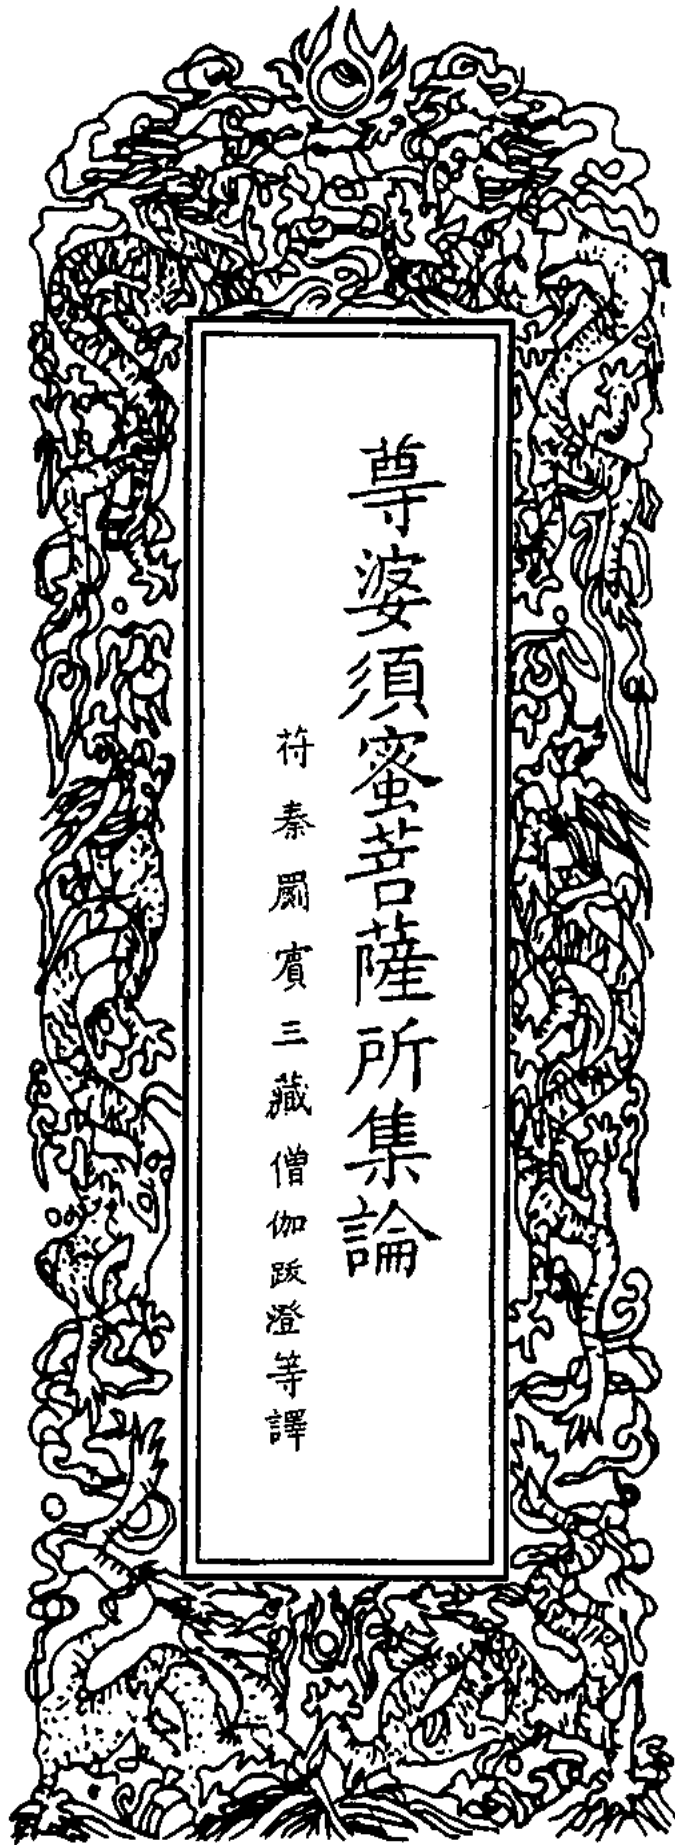 尊婆須蜜菩薩所集論
符秦罽賓三藏僧伽跋澄等譯